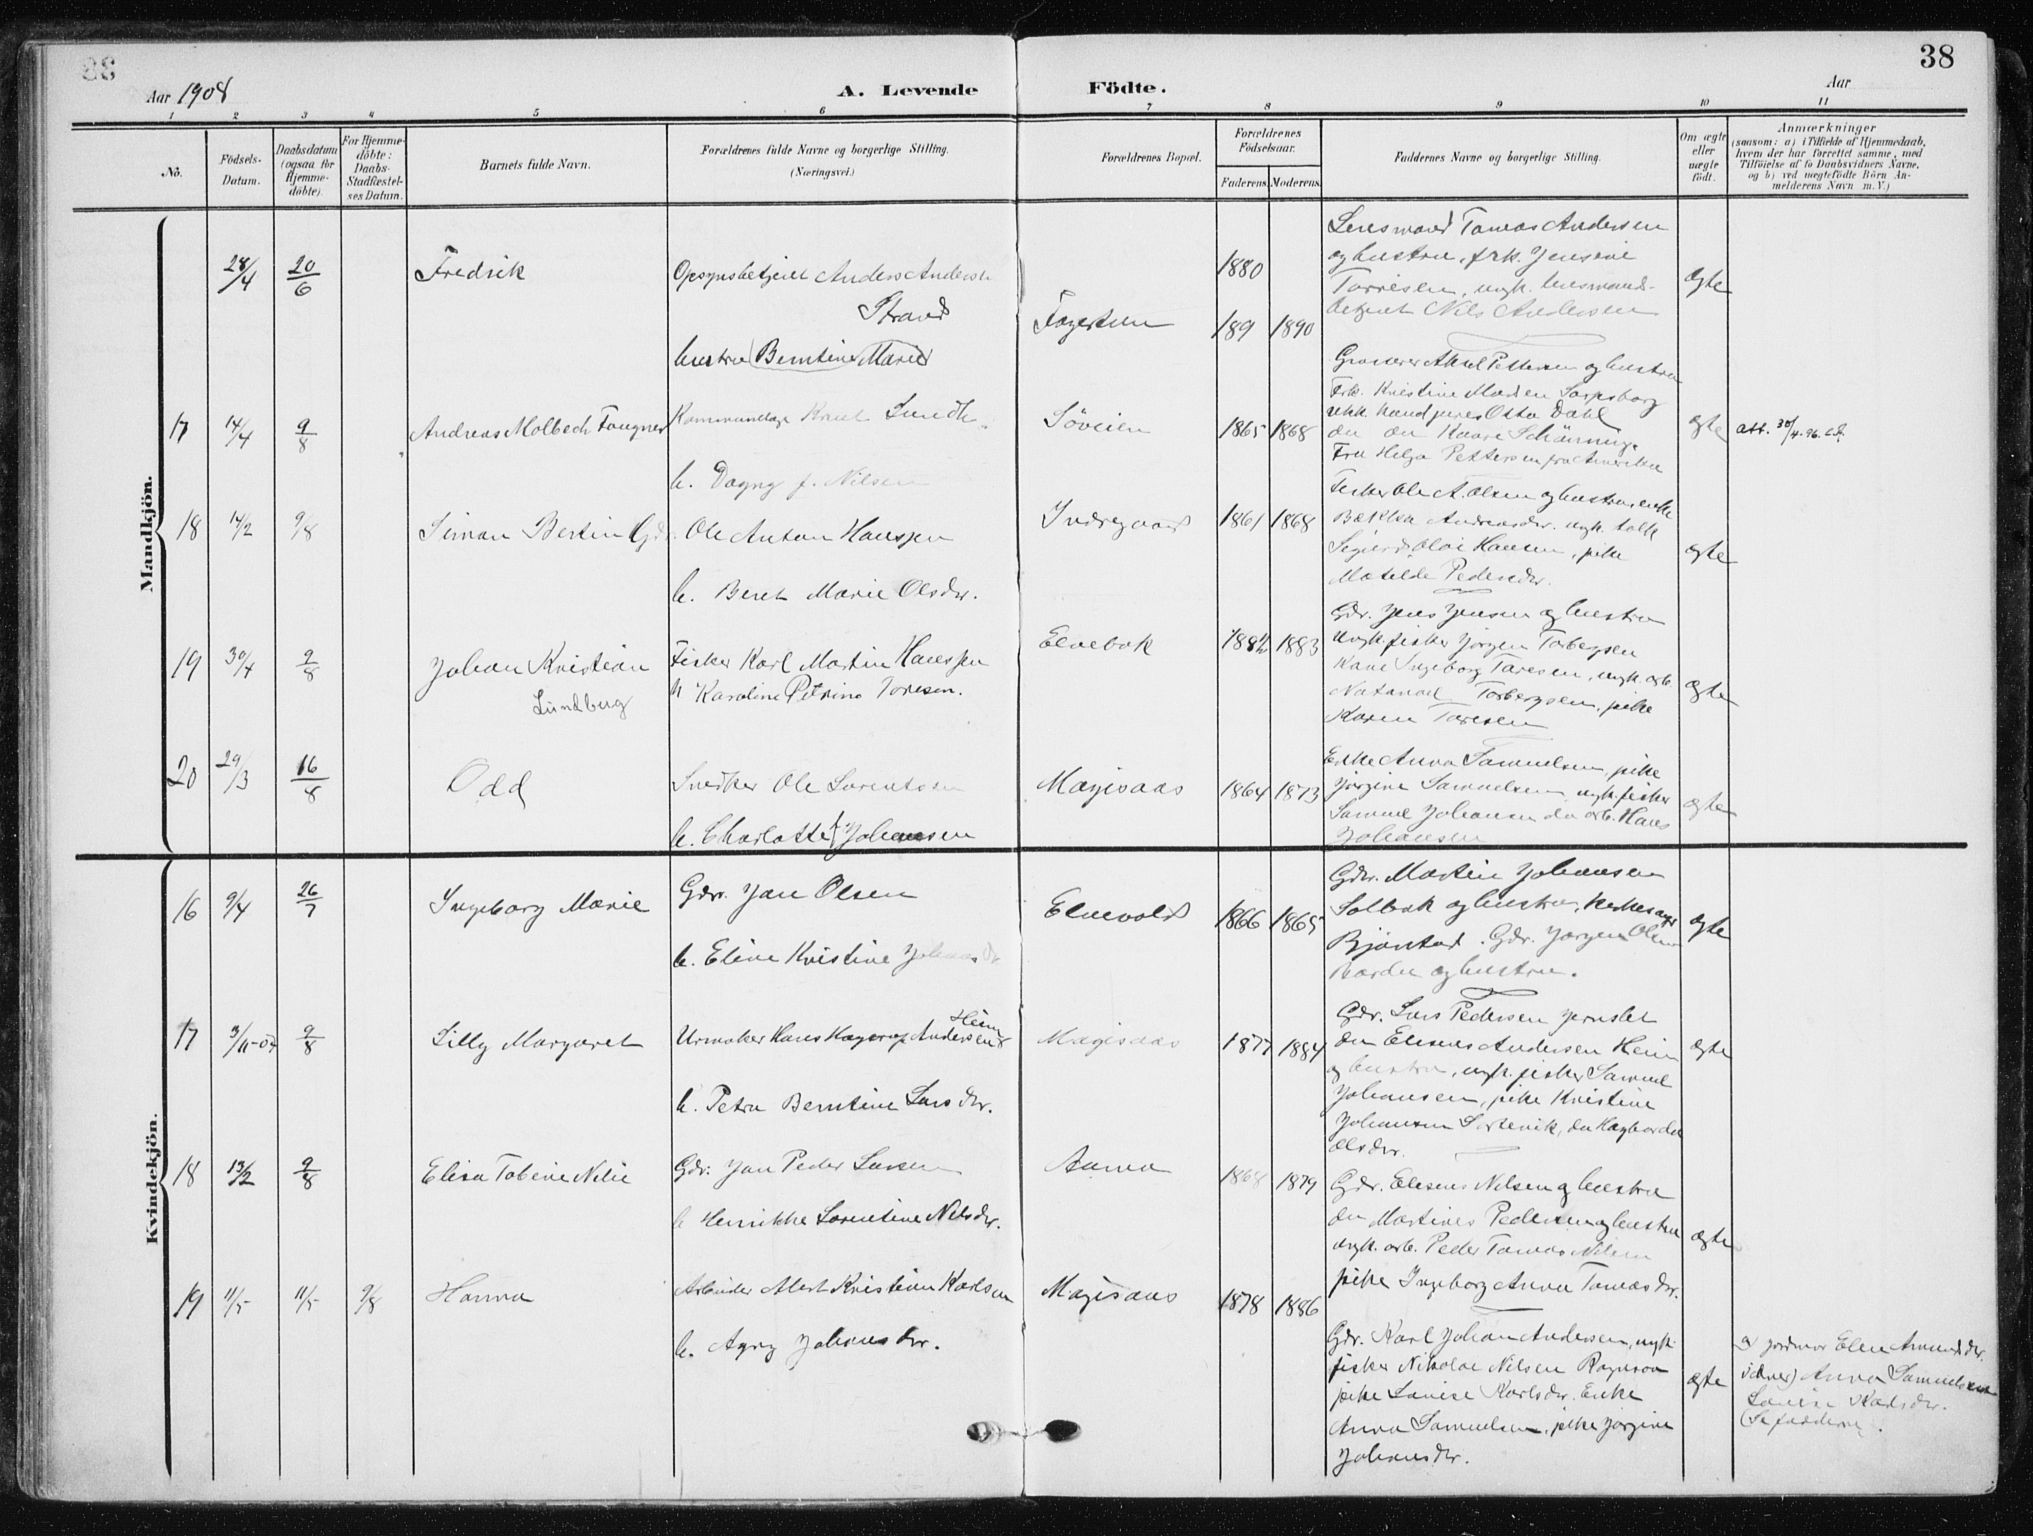 38
Aar 1908
A. Levende Födte.
Aar
1 2 3 4 5 6 7 8 9 10 11
No.
Födsels-Datum.
Daabsdatum (ogsaa for Hjemme-döbte).
For Hjemme-döbte: Daabs-Stadfæstel-ses Datum.
Barnets fulde Navn.
Forældrenes fulde Navne og borgerlige Stilling.
(Næringsvei.)
Forældrenes Bopæl.
Forældrenes Födselsaar.
Faderens. Moderens.
Faddernes Navne og borgerlige Stilling.
Om ægte eller uægte födt.
Anmærkninger
(saasom: a) i Tilfælde af Hjemmedaab,
hvem der har forrettet samme, med
Tilföielse af to Daabsvidners Navne,
og b) ved uægtefödte Börn An-
melderens Navn m. V.)
Mandkjön.
28/4 20/6 Fredrik
Opsynsbetjent Anders Andersen
Strand
hustru Berntine Marie
1880
189 1890
Tomas Andersen
og hustru, frk. Jensine
Torresen, ungk. lensmands-
betjent Nils Andersen
ægte
17 14/4 9/8 Andreas Molbech Faugner
Lund
h. Dagny f. Nilsen
Söveien
1865 1868
Pettersen og hustru
Frk. Kristine Madsen Sarpsborg
Otto Dahl
do do Kaare
Fru Helga Pettersen fra Amerika
ægte
att. 30/4.96.
18 14/2 9/8 Simon Bertin
Ole Anton Hanssen
h. Beret Marie Olsdr.
Indregaard
1861 1868
Fisker Ole A. Olsen og hustru, enke
Andreasdr. ungk.
Hansen, pike
Matilde Pedersdr.
ægte
19 30/4 9/8 Johan Kristian
Lundberg
Fisker Karl Martin Hanssen
h Karoline Petrine Toresen.
Elvebak
1882 1883
Gdr. Jens Jensen og hustru
Ungk. fisker Jörgen Torbergsen
Kone Ingeborg Toresen, ungk. arb.
Natanael Torbergsen, pike
Karen Toresen
ægte
20 29/3 16/8 Odd
Snedker Ole Lorentsen
h. Charlotte f. Johansen
Magisaas
1864 1873
Enke Anna Samuelsen, pike
Jörgine Samuelsen, ungk. fisker
Samuel Johansen do arb. Hans
Johansen
ægte
Kvindekjön.
16 9/4 26/7 Ingeborg Marie
Gdr. Jan Olsen
h. Eline Kristine
Elvevold
1866 1865
Gdr. Martin Johansen
Solbak og hustru,
Bjönstad. Gdr. Jörgen Olsen
og hustru.
ægte
17 3/11-07 9/8 Lilly Margaret
Heim
Urmaker Hans Hagerup Andersen
h. Petra Berntine Larsdr.
Magisaas
1877 1884
Gdr. Lars Pedersen
do Elisæus Andersen Heim
og hustru, ungk. fisker Samuel
Johansen, pike Kristine
Johansen
Olsdr.
ægte
18 13/2 9/8 Elisa Tobine Nelie
Gdr. Jan Peder Larsen
h Henrikke Lorentine Nilsdr.
1868 1879
Gdr. Elisæus Nilsen og hustru
do Martines Pedersen og hustru
ungk. arb. Peder Tomas Nilsen
pike Ingeborg Anna Tomasdr.
ægte
19 11/5 11/5 9/8 Hanna
Arbeider Albert Kristian Karlsen
h. Agny Johansdr.
Magisaas
1878 1886
Gdr. Karl Johan Andersen, ungk.
fisker Nikolai Nilsen
pike Lovise Karlsdr. Enke
Anna Samuelsen, pike Jörgine
Johansdr.
ægte
a) jordmor Elen Amundsdr.
Anna Samuelsen
Lovise Karlsdr.
(Se fadderne).